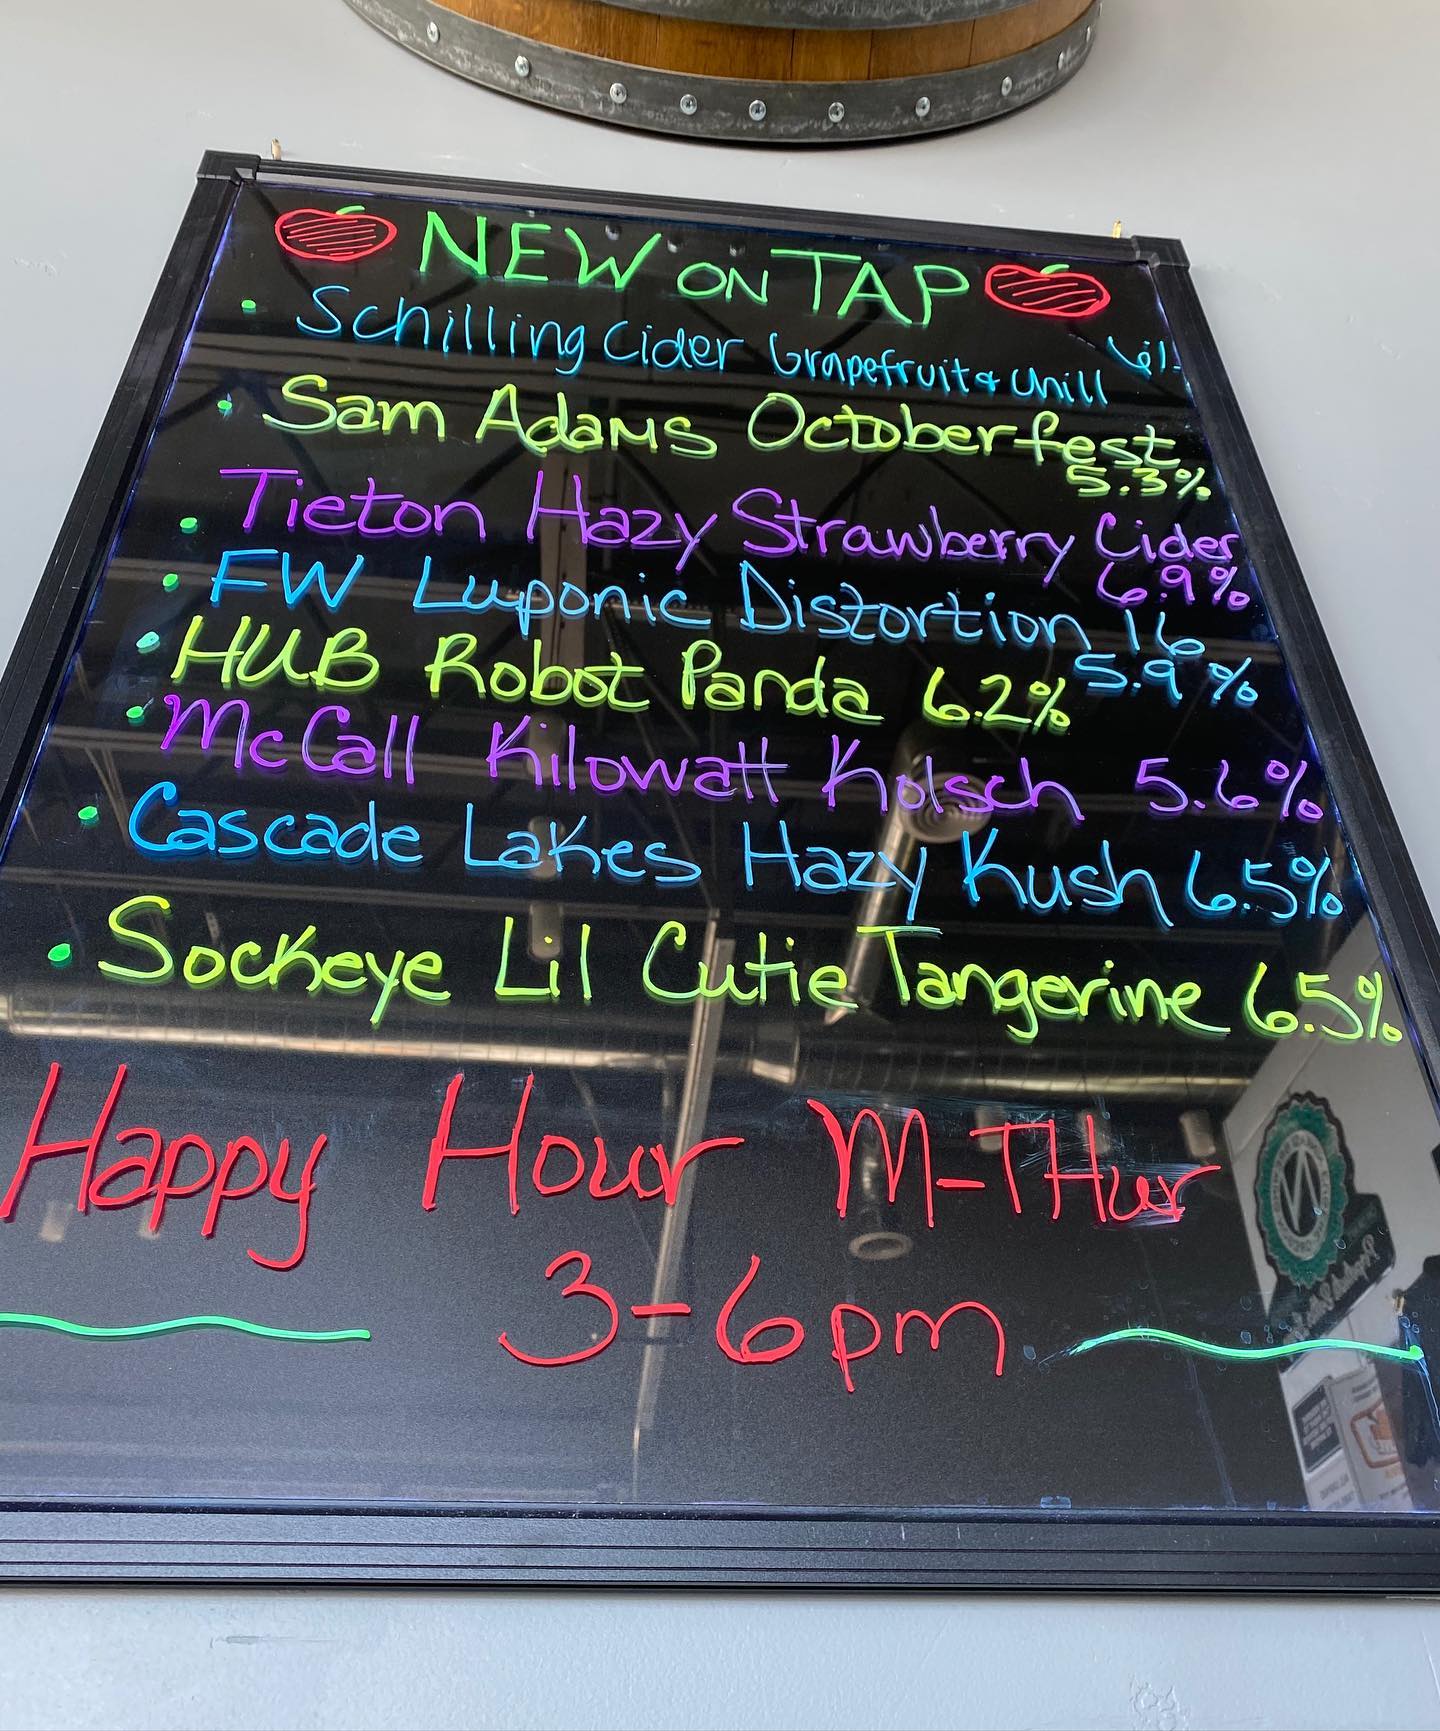 NEW ON TAP
• Schilling Cider Grapefruit & Chill
• Sam Adams Octoberfest
5.3%
• Tieton Hazy Strawberry Cider
6.9%
• FW Luponic Distortion 16
5.9%
• HUB Robot Panda 6.2%
• McCall Kilowatt Kolsch 5.6%
• Cascade Lakes Hazy Kush 6.5%
• Sockeye Lil Cutie Tangerine 6.5%
Happy Hour M-THur
3-6pm